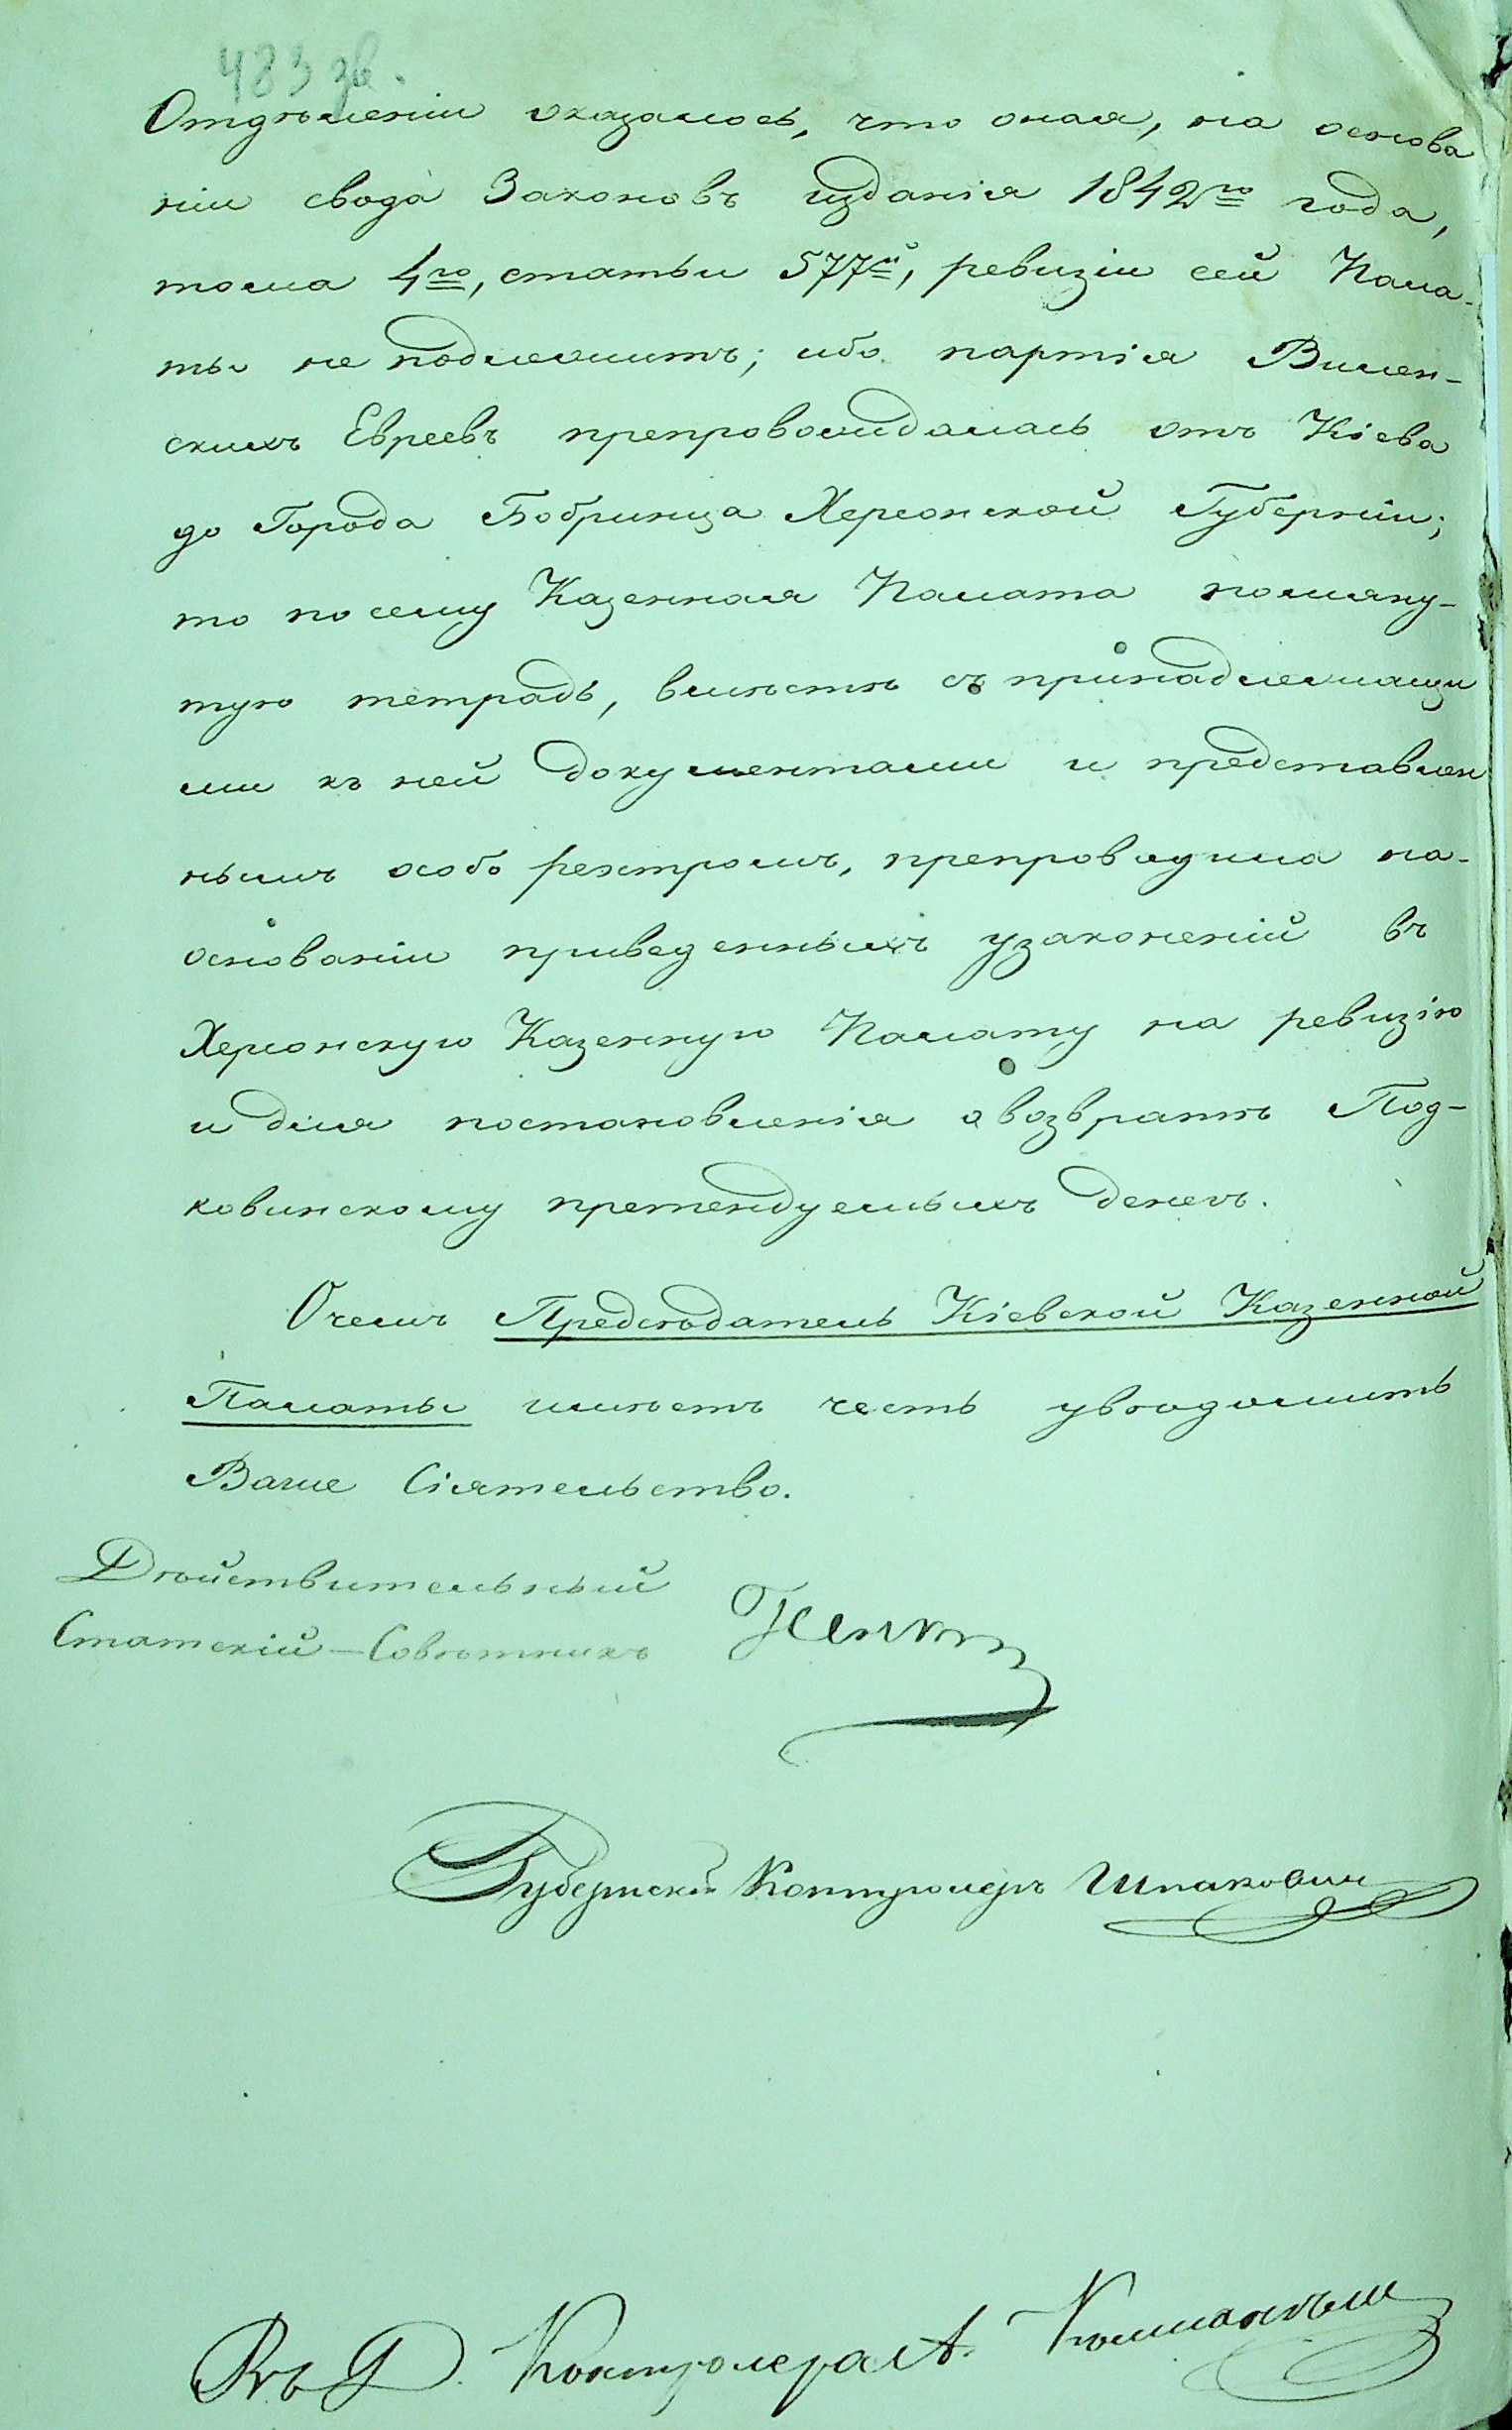 483 зв.
Отдѣленіи оказалось, что оная, на основа
ніи свода Законовъ изданія 1842го года,
тома 4го, статьи 577й, ревизіи сей Пала-
ты не подлежитъ; ибо партія Вилен-
скихъ Евреевъ препровождалась отъ Кіева
до Города Бобринца Херсонской Губерніи;
то по сему Казенная Палата помяну-
тую тетрадь, вмѣстѣ съ принадлежащи
ми къ ней документами и представлен
нымъ особо реэстромъ, препроводила на-
основаніи приведенныхъ узаконеній въ
Херсонскую Казенную Палату на ревизію
и для постановленія о возвратѣ Под-
ковинскому претендуемыхъ денегъ.
О чемъ Предсѣдатель Кіевской Казенной
Палаты имѣетъ честь увѣдомить
Ваше Сіятельство.
Дѣйствительный
Статскій-Совѣтникъ
Губернскій Контролеръ Шпакович
Контролера А.